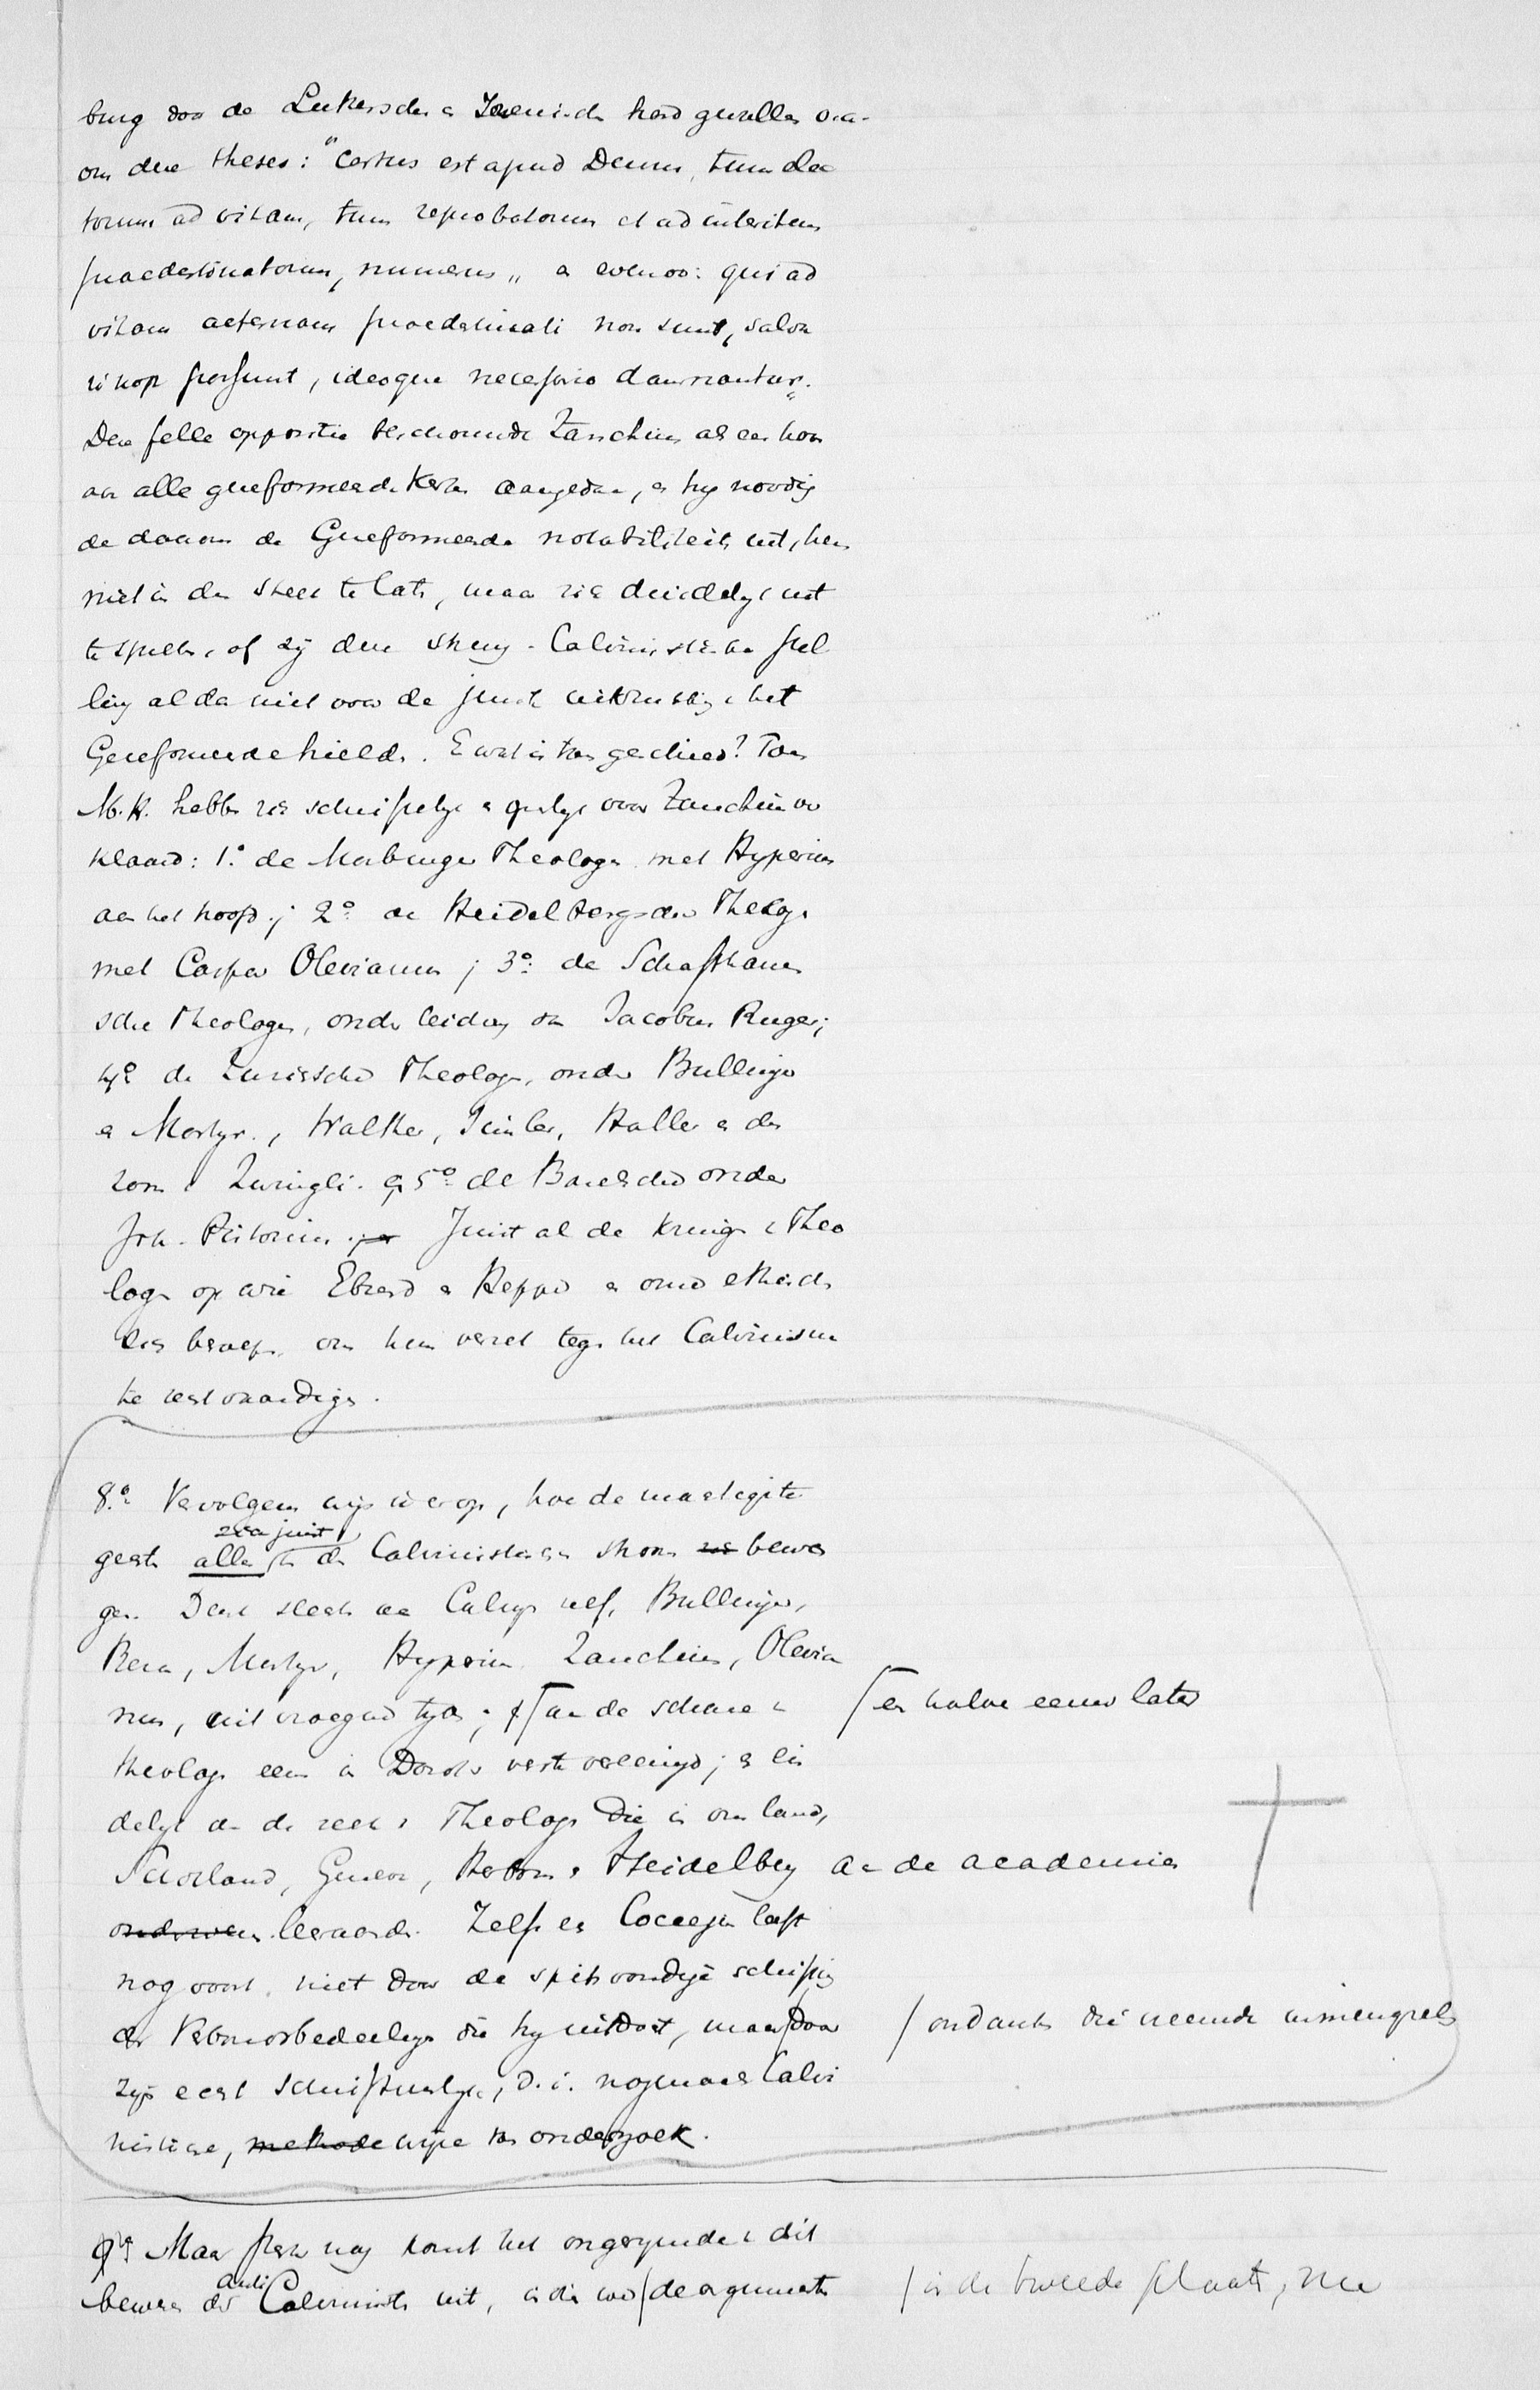 burg door de Luthersche en Irenische hard gevallen o.a.
om deze theses: "Certus est apud Deum, tum elec
torum ad vitam, tum reproborum et ad interitum
praedestinatorum, numerus" en evenzoo: qui ad
vitam aeternam praedestinati non sunt, salva
ri non possunt, ideoque necessario damnantur."
Deze felle oppositie beschouwde Zanchius als een hoon
aan alle gereformeerde Kerken aangedaan, en hij noodig
de daarom de Gereformeerde notabiliteiten uit, hem
niet in den steek te laten, maar zich duidelijk uit
te spreken, of zij deze streng-Calvinistische stel
ling al dan niet voor de juiste uitdrukking v. het
Gereformeerde hielden. En wat is toen geschied? Toen
M.H. hebben zich schriftelijk en openlijk voor Zanchius ver
klaard: 1.° de Marburger Theologen met Hyperius
aan het hoofd; 2° de Heidelbergsche Theologen
met Caspar Olevianus; 3° de Schaffhauser
sche Theologen, onder leiding van Jacobus Ruger;
4° de Zurichsche Theologen, onder Bullinger
en Martyr, Walther, Simler, Haller en den
zoon v. Zwingli. en 5° de Baselsche onder
Joh. Pistorius. Juist al de kringen v. Theo
logen op wie Ebrard en Heppe en onze ethische
zich beroepen om hun verzet tegen het Calvinisme
te rechtvaardigen.
8.° Vervolgens wijs ik er op, hoe de machtigste
zich juist
geesten alle in de Calvinistische stroom bewe
gen. Denk slechts aan Calvijn zelf, Bullinger,
Beza, Martyr, Hyperius, Zanchius, Olevia
nus, uit vroeger tijd; aan de schare v. / een halve eeuw later
theologen eens in Dordrechts veste vereenigd; en ein
delijk aan de reeks v. Theologen die in ons land,
Schotland, Geneve, Herborn en Heidelberg aan de academies
onderwezen leeraarden. Zelfs een Coccejus leeft
nog voort, niet door de spitsvondige schifting
der Verbondsbedeelingen die hij uitdacht, maar door / ondanks die vreemde inmengsels
zijn echt schriftuurlijke, d.i. nogmaals Calvi
nistische, methode wijze van onderzoek.
9° Maar sterker nog komt het ongerijmde v. dit
anti
beweren der Calvinisten uit, indien wij de argumenten / in de tweede plaats, nu